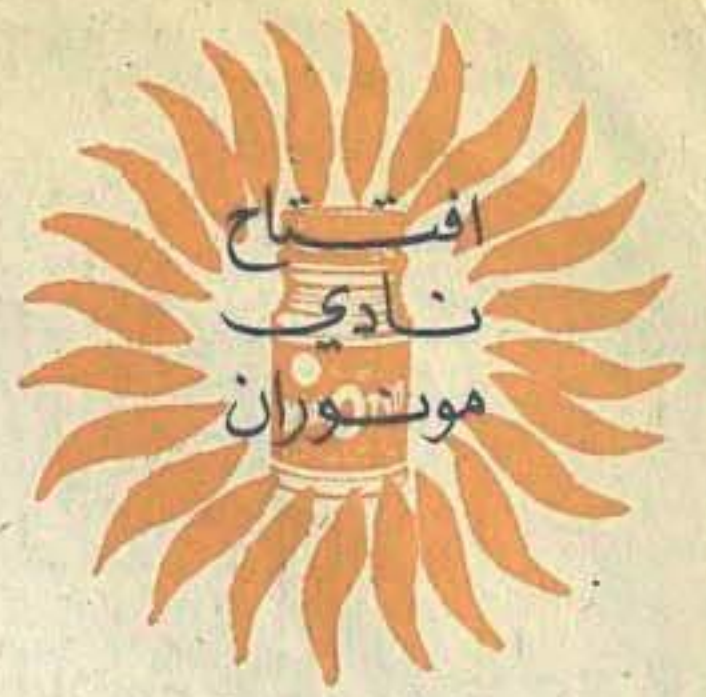 افتتاح
نادي
مونوران